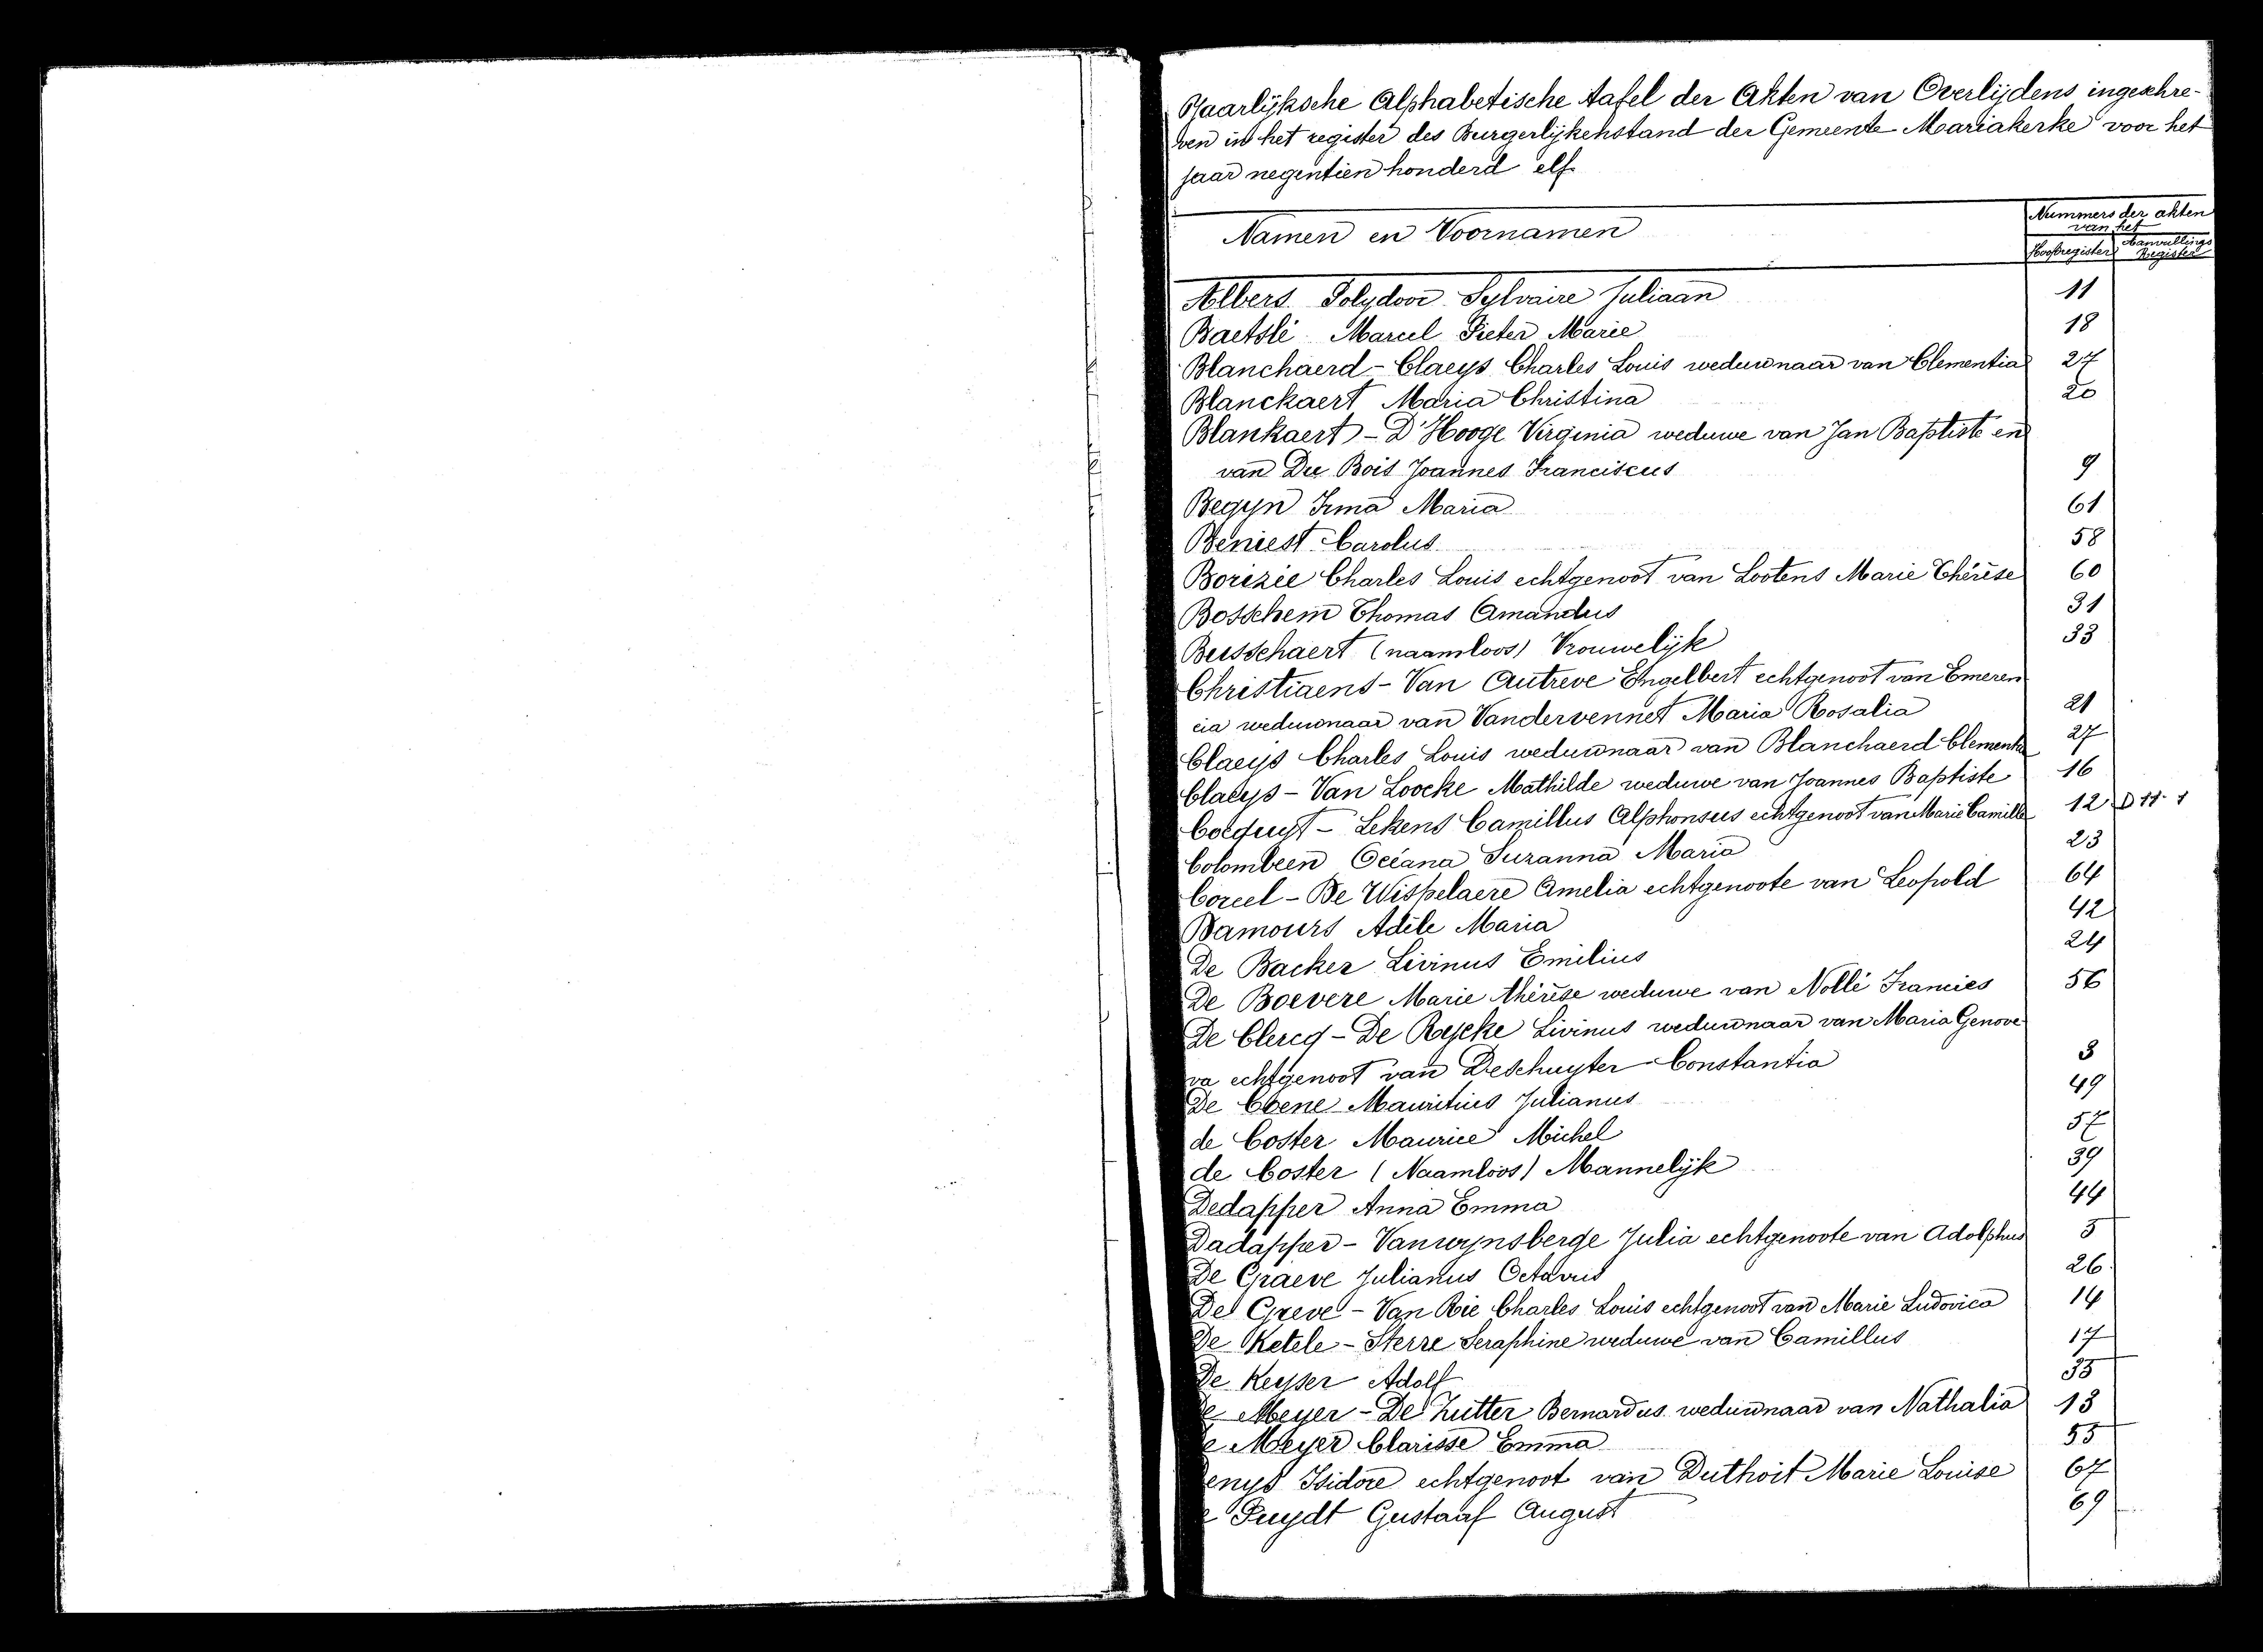 Jaarlijksche Alphabetische tafel der Akten van Overlijdens ingeschre-
ven in het register des Burgerlijkenstand der Gemeente Mariakerke voor het
jaar negentien honderd elf
Namen en Voornamen
Nummers der akten
van het
Hoofdregister Aanvullings
Register
Albers Polydoor Sylvaire Juliaan 11
Baetslé Marcel Pieter Marie 18
Blanchaerd - Claeys Charles Louis weduwnaar van Clementia 27
Blanckaert Maria Christina 20
Blankaert - D'Hooge Virginia weduwe van Jan Baptiste en
van Du Bois Joannes Franciscus 9
Begyn Irma Maria 61
Beniest Carolus 58
Borezée Charles Louis echtgenoot van Lootens Marie Thérèse 60
Bosschem Thomas Amandus 31
Busschaert (naamloos) Vrouwelijk 33
Christiaens - Van Autreve Engelbert echtgenoot van Emeren
cia weduwnaar van Vandervennet Maria Rosalia 21
Claeys Charles Louis weduwnaar van Blanchaerd Clementia 27
Claeys - Van Loocke Mathilde weduwe van Joannes Baptiste 16
Colquyt - Lekens Camillus Alphonsus echtgenoot van Marie Camille 12 D 11. 1
Colombeen Océana Suzanna Maria 23
Coreel - De Wispelaere Amelia echtgenoote van Leopold 64
Damours Adèle Maria 42
De Backer Livinus Emilius 24
De Boevere Marie thérèse weduwe van Nollé Francies 56
De Clercq - De Rycke Livinus weduwnaar van Maria Genove
va echtgenoot van Deschuyter Constantia 3
De Coene Mauritius Julianus 49
de Coster Maurice Michel 57
de Coster (Naamloos) Mannelijk 39
Dedapper Anna Emma 44
Dadapper - Vanwynsberge Julia echtgenoote van Adolphus 5
De Graeve Julianus Octavus 26
De Greve - Van Rie Charles Louis echtgenoot van Marie Ludovica 14
De Ketele - Sterre Seraphine weduwe van Camillus 17
De Keyser Adolf 35
e Meyer - De Zutter Bernardus weduwnaar van Nathalia 13
e Meyer Clarisse Emma 55
enys Isidore echtgenoot van Duthoit Marie Louise 67
e Puydt Gustaaf August 69